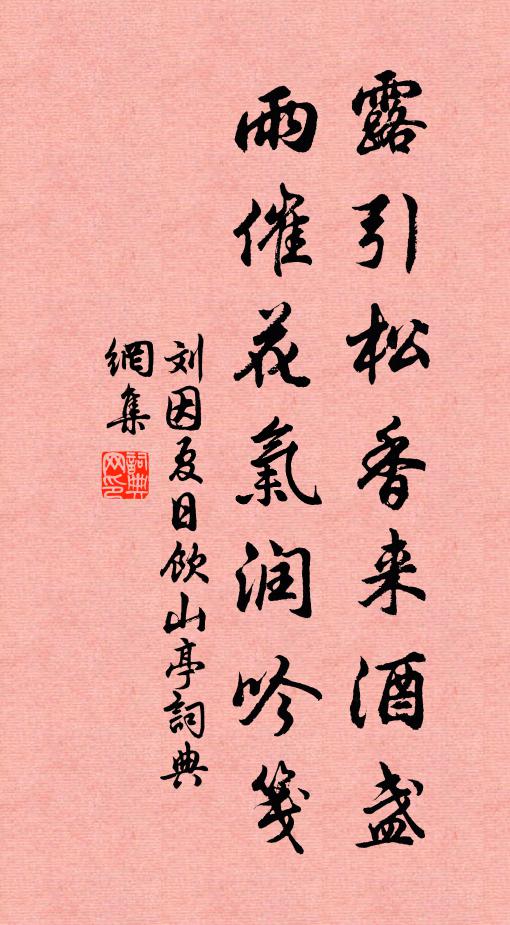 露引松香来酒盏
雨催花氣润吟笺
刘因夏日饮山亭詞典
網集
詞典网印